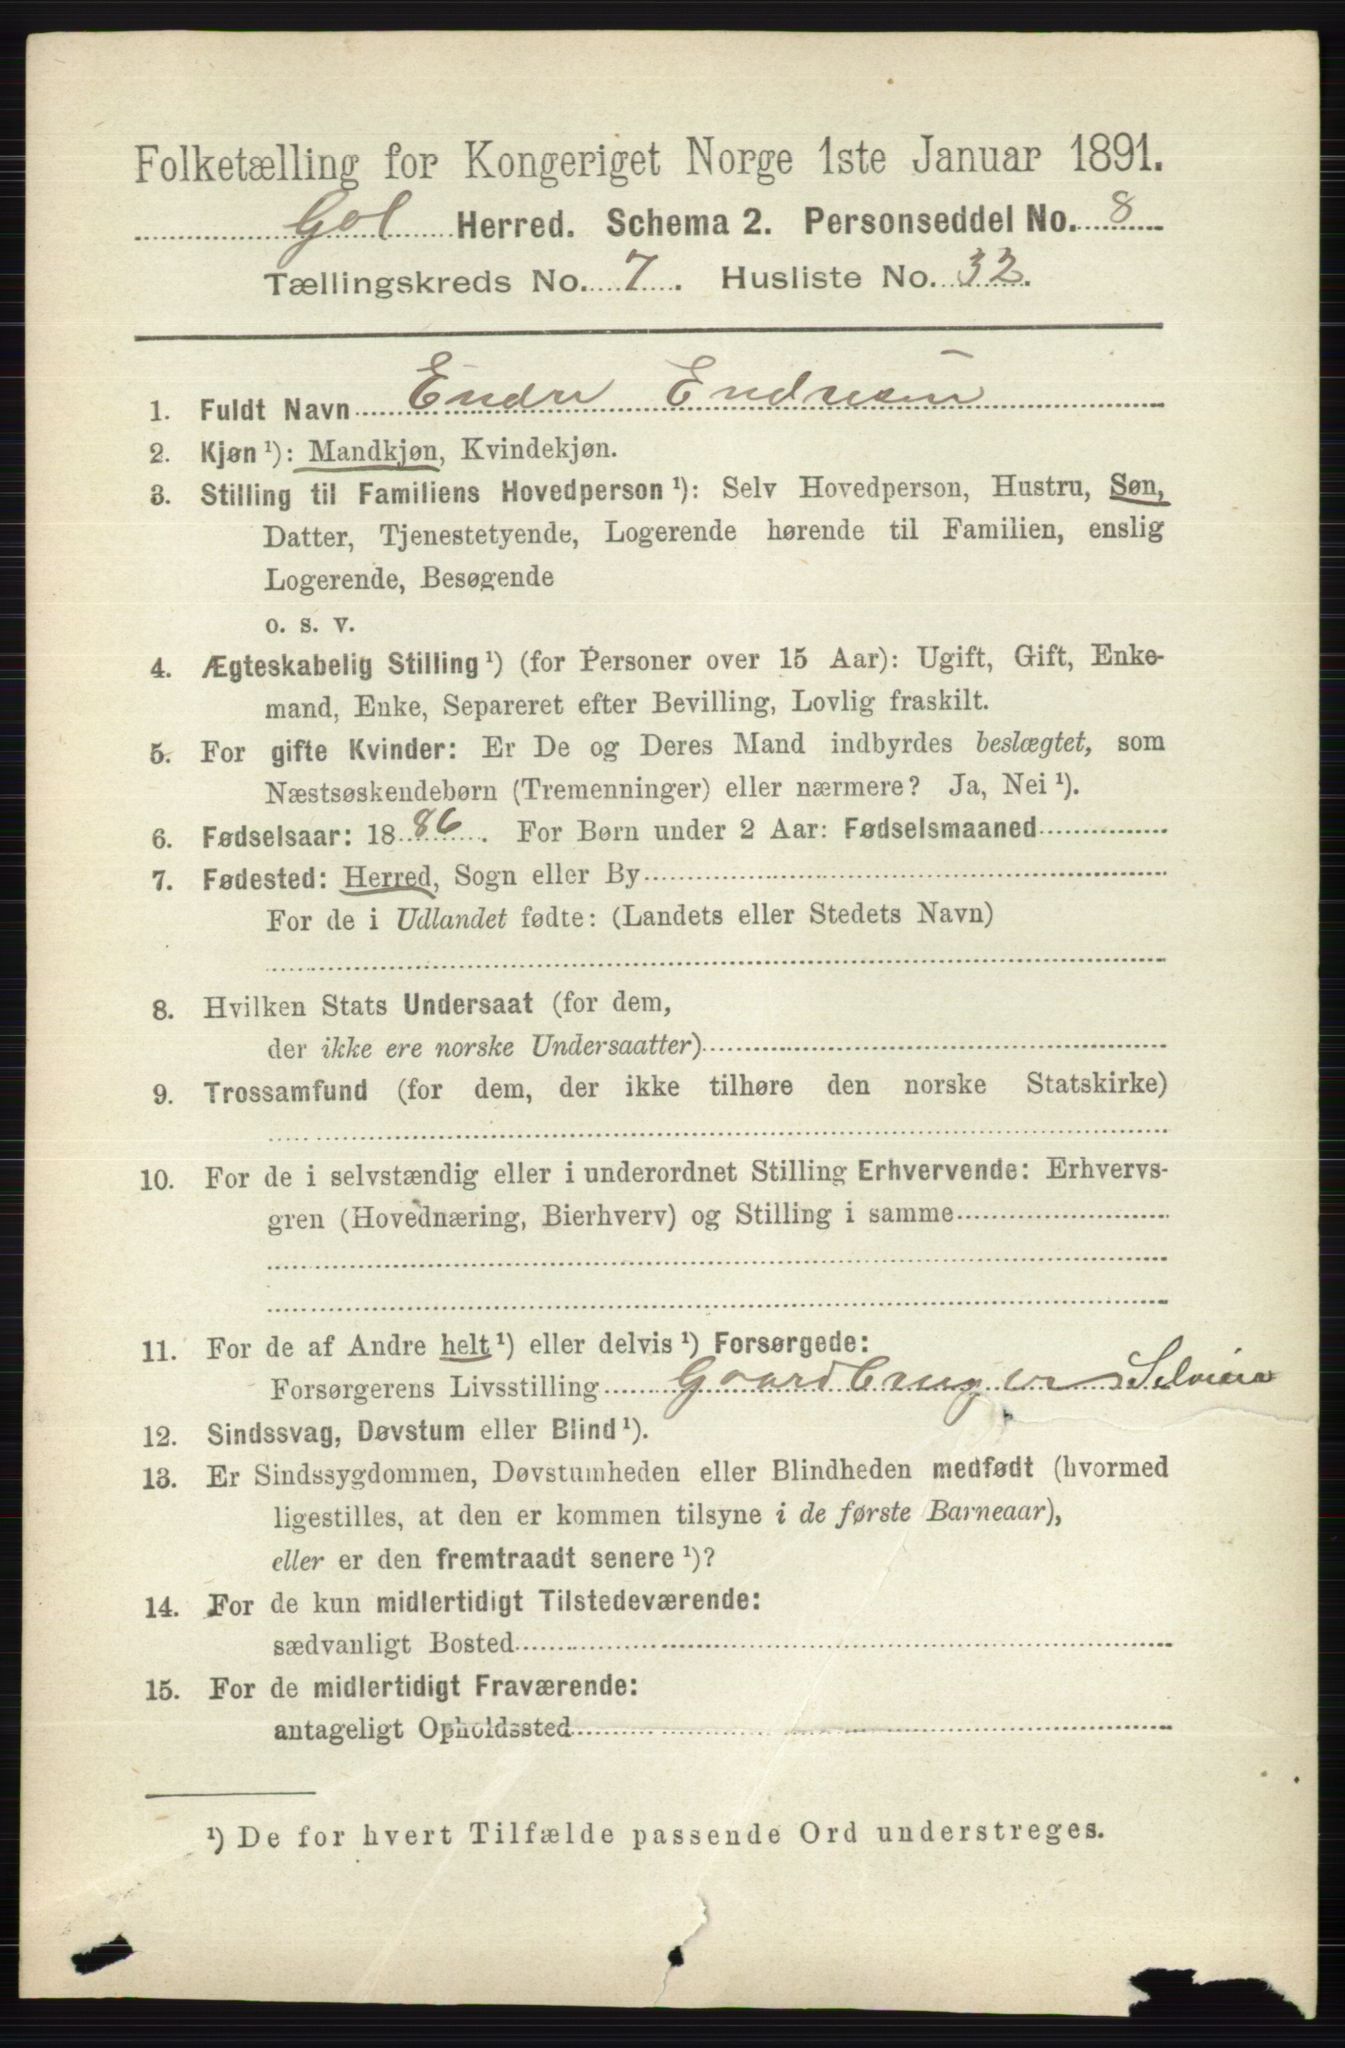 Folketælling for Kongeriget Norge 1ste Januar 1891.
Gol Herred. Schema 2. Personseddel No. 8
Tællingskreds No. 7. Husliste No. 32.
1. Fuldt Navn Endre Endresen
2. Kjøn ¹): Mandkjøn, Kvindekjøn.
3. Stilling til Familiens Hovedperson ¹): Selv Hovedperson, Hustru, Søn,
Datter, Tjenestetyende, Logerende hørende til Familien, enslig
Logerende, Besøgende
o. s. v.
4. Ægteskabelig Stilling ¹) (for Personer over 15 Aar): Ugift, Gift, Enke-
mand, Enke, Separeret efter Bevilling, Lovlig fraskilt.
5. For gifte Kvinder: Er De og Deres Mand indbyrdes beslægtet, som
Næstsøskendebørn (Tremenninger) eller nærmere? Ja, Nei ¹).
6. Fødselsaar: 1886. For Børn under 2 Aar: Fødselsmaaned
7. Fødested: Herred, Sogn eller By
For de i Udlandet fødte: (Landets eller Stedets Navn)
8. Hvilken Stats Undersaat (for dem,
der ikke ere norske Undersaatter)
9. Trossamfund (for dem, der ikke tilhøre den norske Statskirke)
10. For de i selvstændig eller i underordnet Stilling Erhvervende: Erhvervs-
gren (Hovednæring, Bierhverv) og Stilling i samme
11. For de af Andre helt ¹) eller delvis ¹) Forsørgede:
Forsørgerens Livsstilling Gaardbruger Selveier
12. Sindssvag, Døvstum eller Blind ¹).
13. Er Sindssygdommen, Døvstumheden eller Blindheden medfødt (hvormed
ligestilles, at den er kommen tilsyne i de første Barneaar),
eller er den fremtraadt senere ¹)?
14. For de kun midlertidigt Tilstedeværende:
sædvanligt Bosted
15. For de midlertidigt Fraværende:
antageligt Opholdssted
¹) De for hvert Tilfælde passende Ord understreges.